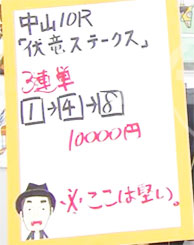 中山10R
「伏竜ステークス」
3連単
1→4→8
10000円
※ここは堅い。